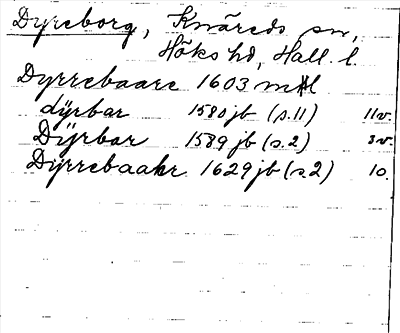 Dyreborg, Knäreds sn,
Höks hd, Hall. l.
Dyrrebaare 1603 mtl
dÿrbar 1580 jb (s. 11) 11v.
Dÿrbar 1589 jb (s. 2) 3v.
Dÿrrebaahr 1629 jb (s. 2) 10.